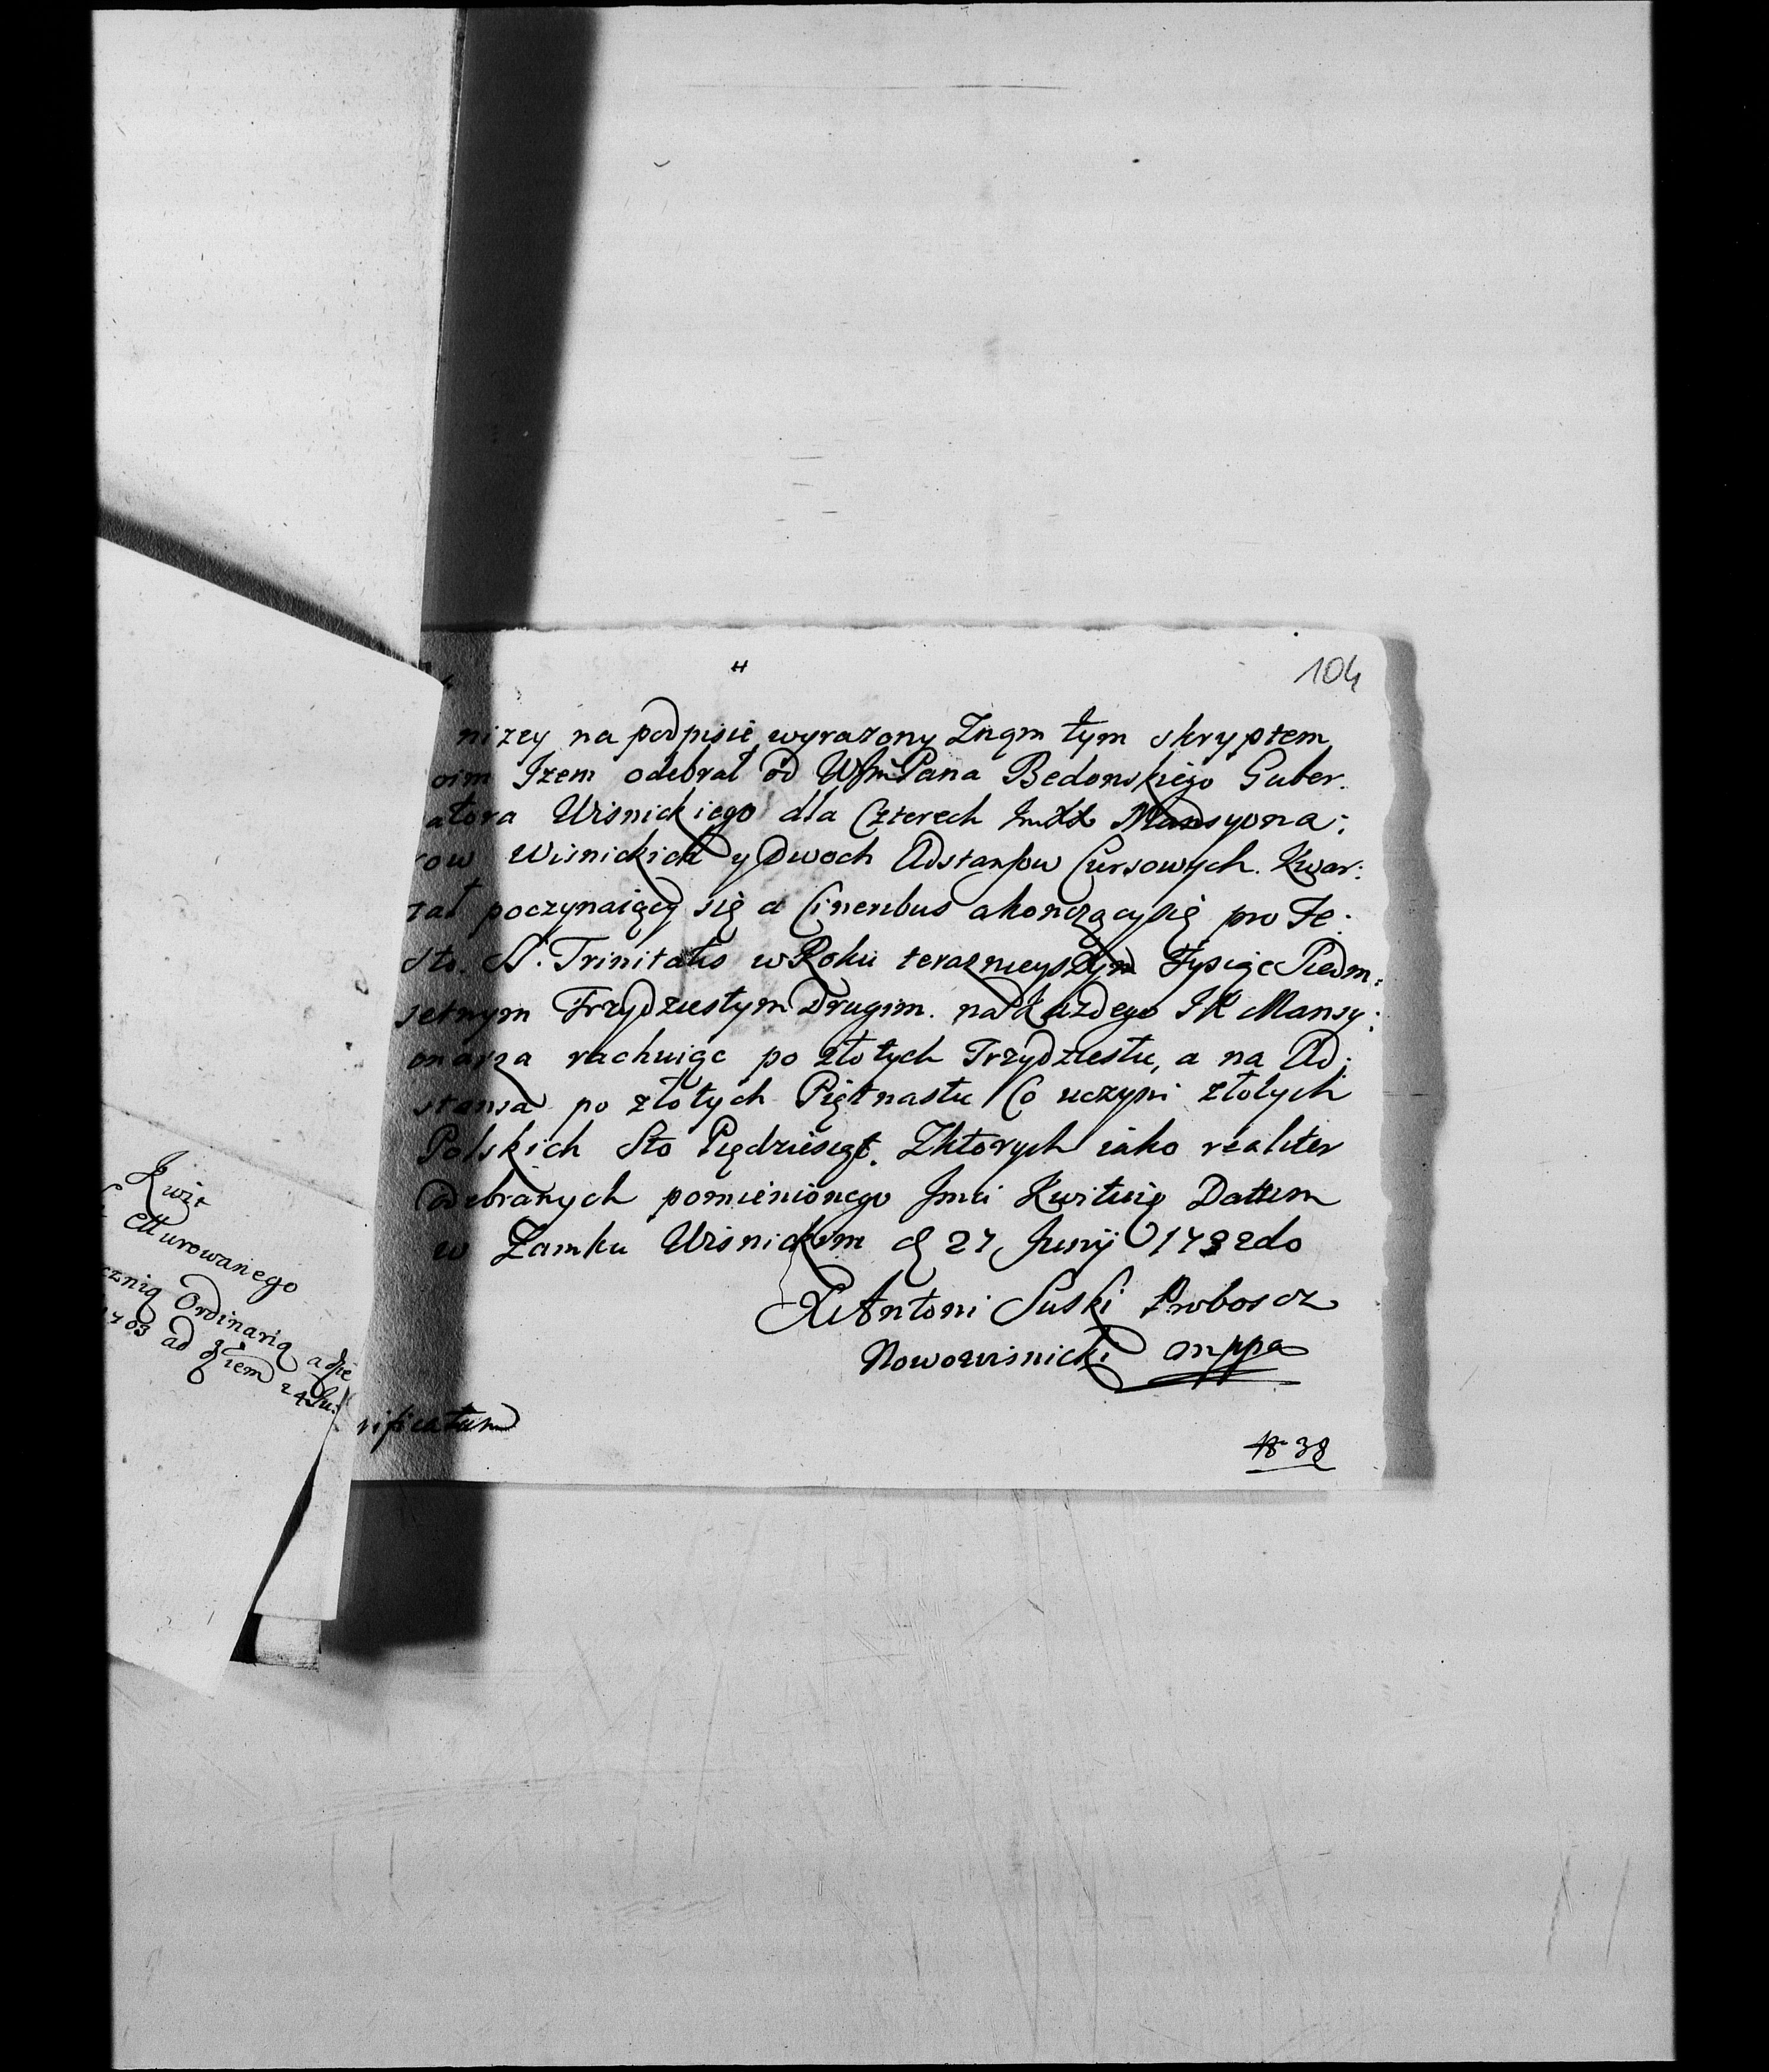 104
nizey na podpisie wyrazony Znam tym skryptem
oim Jzem odebrał od WJm Pana Bedonskiego Guber:
atora Wisnickiego dla Czterech JmXX Mansyona:
row Wisnickich y Dwoch Adstansow Cursowych. Kwar:
tał poczynaiący się a Cineribus akonczący się pro Fe:
sto. SS. Trinitatis w Roku teraznieyszym Tysiąc Siedm:
setnym Trzydziestym Drugim. na Kazdego JX Mansy:
onarza rachuiąc po złotych Trzydziestu, a na Ad:
stansa po złotych Piętnastu Co uczyni złotych
Polskich Sto Piędziesiąt. Zktorych iako realiter
odebranych pomienionego Jmci Kwituię Dattum
w Zamku Wisnickim d 27 Junij 1732do
X Antoni Suski Proboscz
Nowowisnicki mppa
rificatum
No 38
Kwit
Murowanego
cznią Ordinarią a die
1703 ad diem 24 Ju: